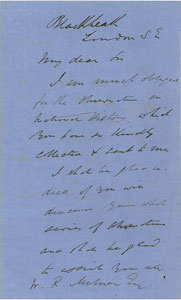 Blackheath
London S E
My dear Sir
I am much obliged
for the Observations on
Natural History which
you have so kindly
collected & sent to me
I shall be glad
indeed if you will
your
series of Observations
and shall be glad
to
W. R. Milner Esq